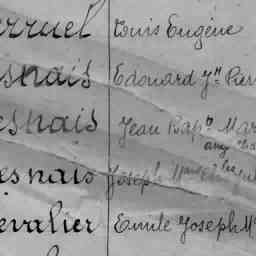 rruel Louis Eugène
snais Edouard Jn Pier
esnais Jean Bapte Mar
esnais Joseph
evalier Emile Joseph M